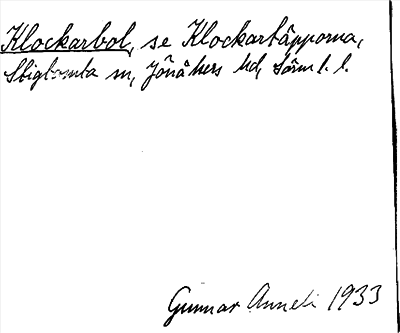 Klockarbol, se Klockartäpporna,
Stigtomta sn, Jönåkers hd, Sörml. l.
Gunnar Anneli 1933